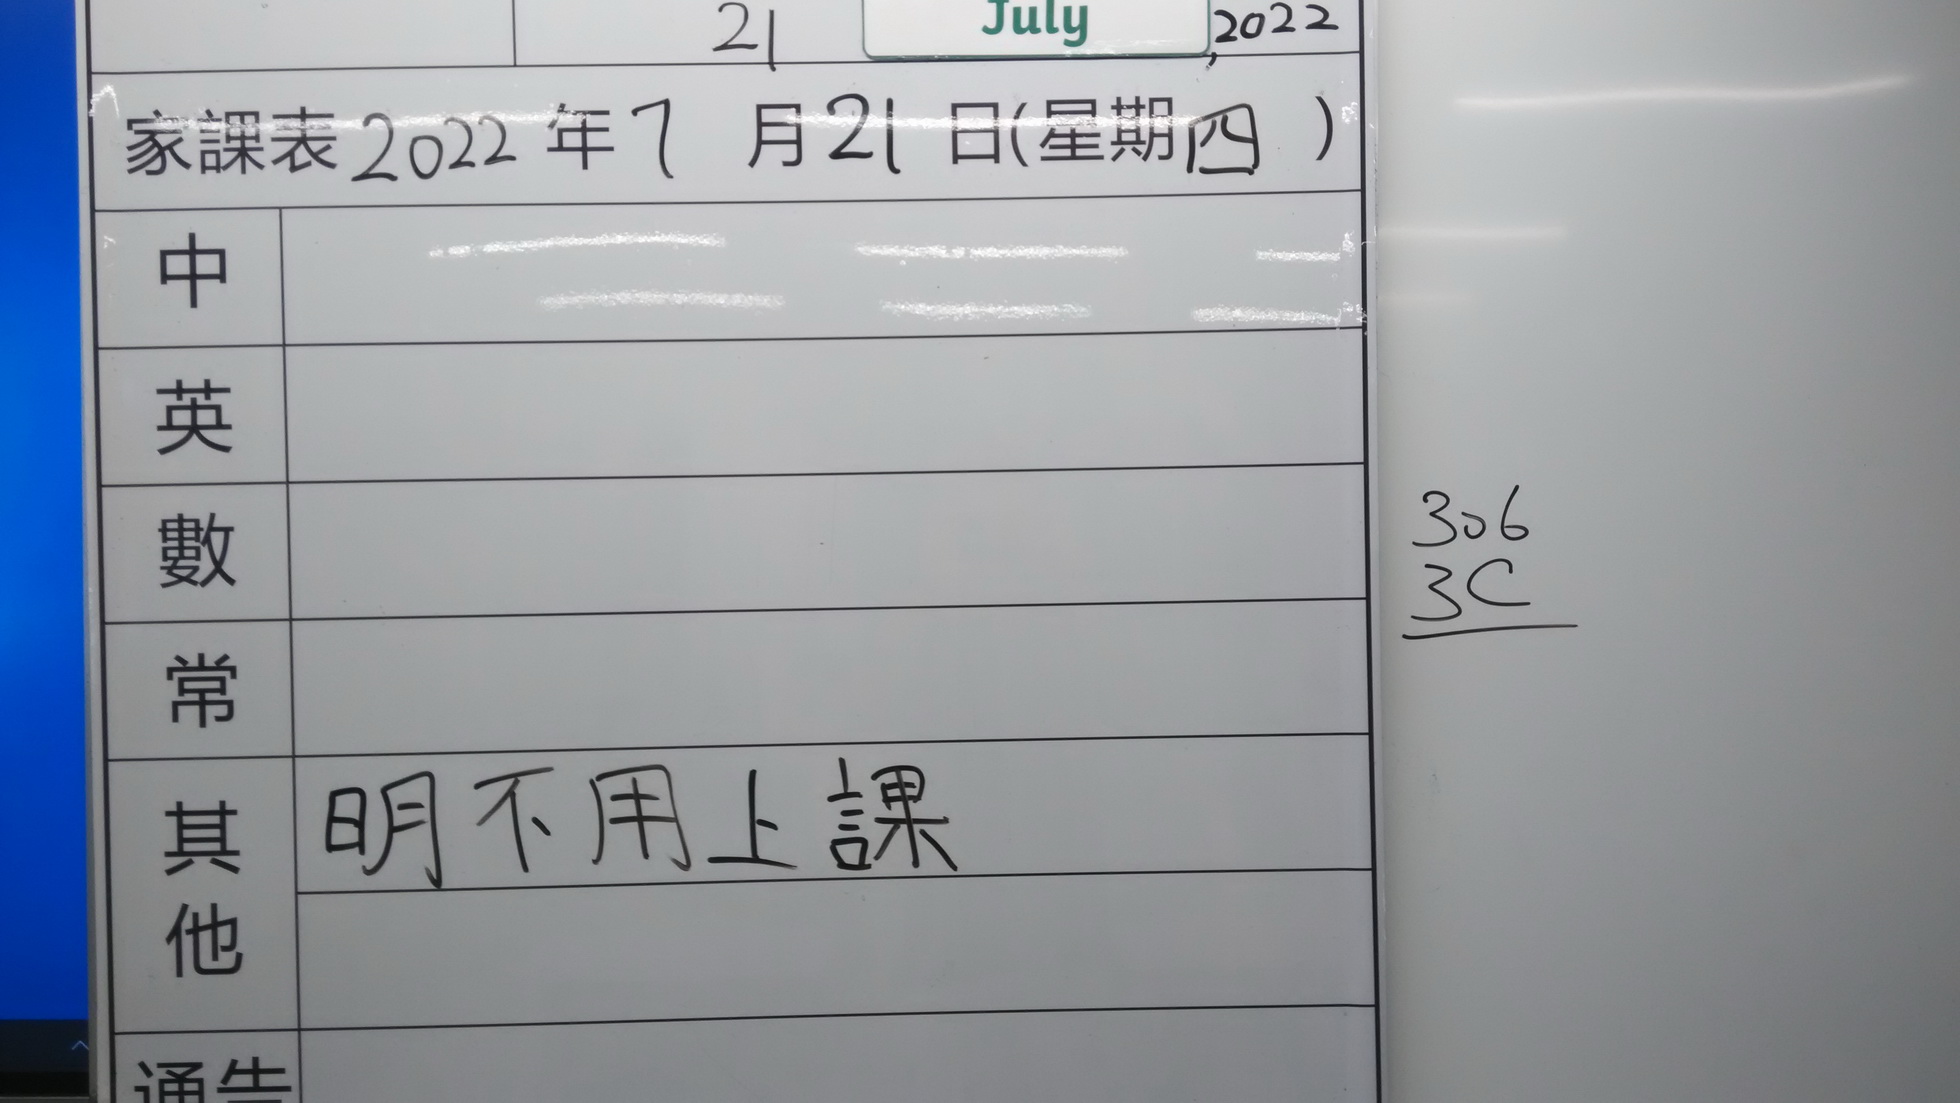 21 July, 2022
家課表2022年7月21日(星期四)
中
英
數
常
其他
明不用上課
通告
306
3C